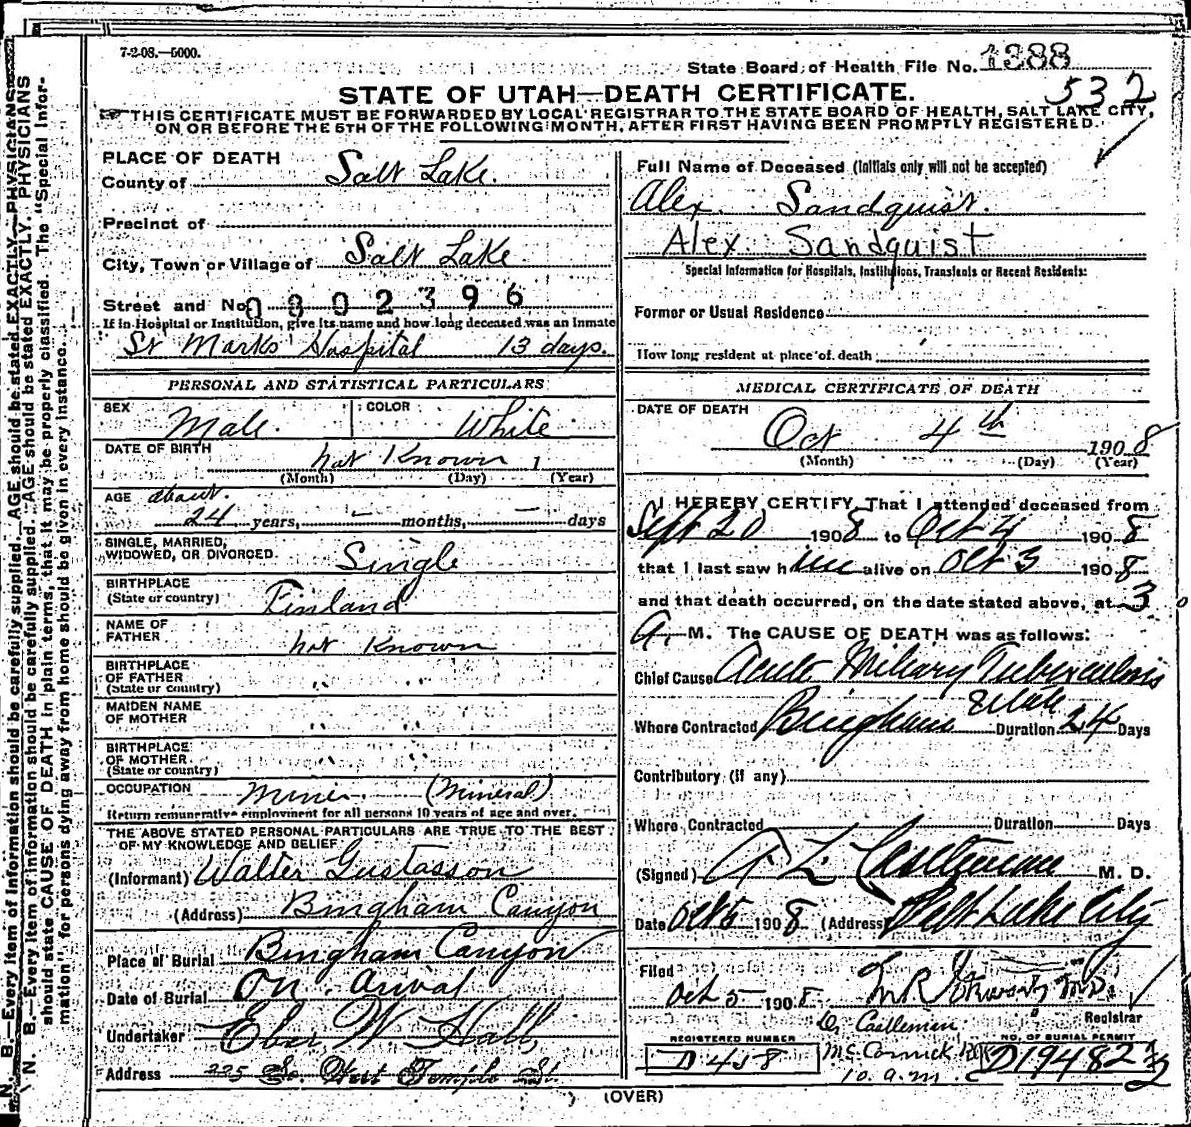 7-2-08.—5000.
State Board of Health File No. 1388
532
STATE OF UTAH—DEATH CERTIFICATE.
THIS CERTIFICATE MUST BE FORWARDED BY LOCAL REGISTRAR TO THE STATE BOARD OF HEALTH, SALT LAKE CITY,
ON OR BEFORE THE 5TH OF THE FOLLOWING MONTH, AFTER FIRST HAVING BEEN PROMPTLY REGISTERED.
PLACE OF DEATH
County of Salt Lake.
Precinct of
City, Town or Village of Salt Lake
Street and No. 0002396
If in Hospital or Institution, give its name and how long deceased was an inmate
St Marks Hospital 13 days.
PERSONAL AND STATISTICAL PARTICULARS
SEX Male.
COLOR White
DATE OF BIRTH not Known 1
(Month) (Day) (Year)
AGE about
24 years, — months, — days
SINGLE, MARRIED,
WIDOWED, OR DIVORCED Single
BIRTHPLACE
(State or country) Finland
NAME OF
FATHER not Known
BIRTHPLACE
OF FATHER
(State or country) " "
MAIDEN NAME
OF MOTHER " "
BIRTHPLACE
OF MOTHER
(State or country) " "
OCCUPATION Miner (Mineral)
Return remunerative employment for all persons 10 years of age and over.
THE ABOVE STATED PERSONAL PARTICULARS ARE TRUE TO THE BEST
OF MY KNOWLEDGE AND BELIEF
(Informant) Walter Gustasson
(Address) Bingham Canyon
Place of Burial Bingham Canyon
Date of Burial On Arival
Undertaker Eber W Hall
Address 225 So. West Temple St.
Full Name of Deceased (Initials only will not be accepted)
Alex Sandquist.
Alex Sandquist
Special Information for Hospitals, Institutions, Transients or Recent Residents:
Former or Usual Residence
How long resident at place of death
MEDICAL CERTIFICATE OF DEATH
DATE OF DEATH
Oct 4th 1908
(Month) (Day) (Year)
I HEREBY CERTIFY, That I attended deceased from
Sept 20 1908 to Oct 4 1908
that I last saw him alive on Oct 3 1908
and that death occurred, on the date stated above, at 3
A. M. The CAUSE OF DEATH was as follows:
Chief Cause Acute Miliary Tuberculosis
Where Contracted Bingham Utah Duration 24 Days
Contributory (if any)
Where Contracted Duration Days
(Signed) A L Castleman M. D.
Date Oct 5 1908 (Address) Salt Lake City
Filed
Oct 5 1908 M.D.
Registrar
Dr Castleman
McCornick
10 a.m.
REGISTERED NUMBER
D 418
NO. OF BURIAL PERMIT
D19482
(OVER)
N. B.—Every item of information should be carefully supplied. AGE should be stated EXACTLY. PHYSICIANS
N. B.—Every item of information should be carefully supplied. AGE should be stated EXACTLY. PHYSICIANS
should state CAUSE OF DEATH in plain terms, that it may be properly classified. The "Special Infor-
mation" for persons dying away from home should be given in every instance.